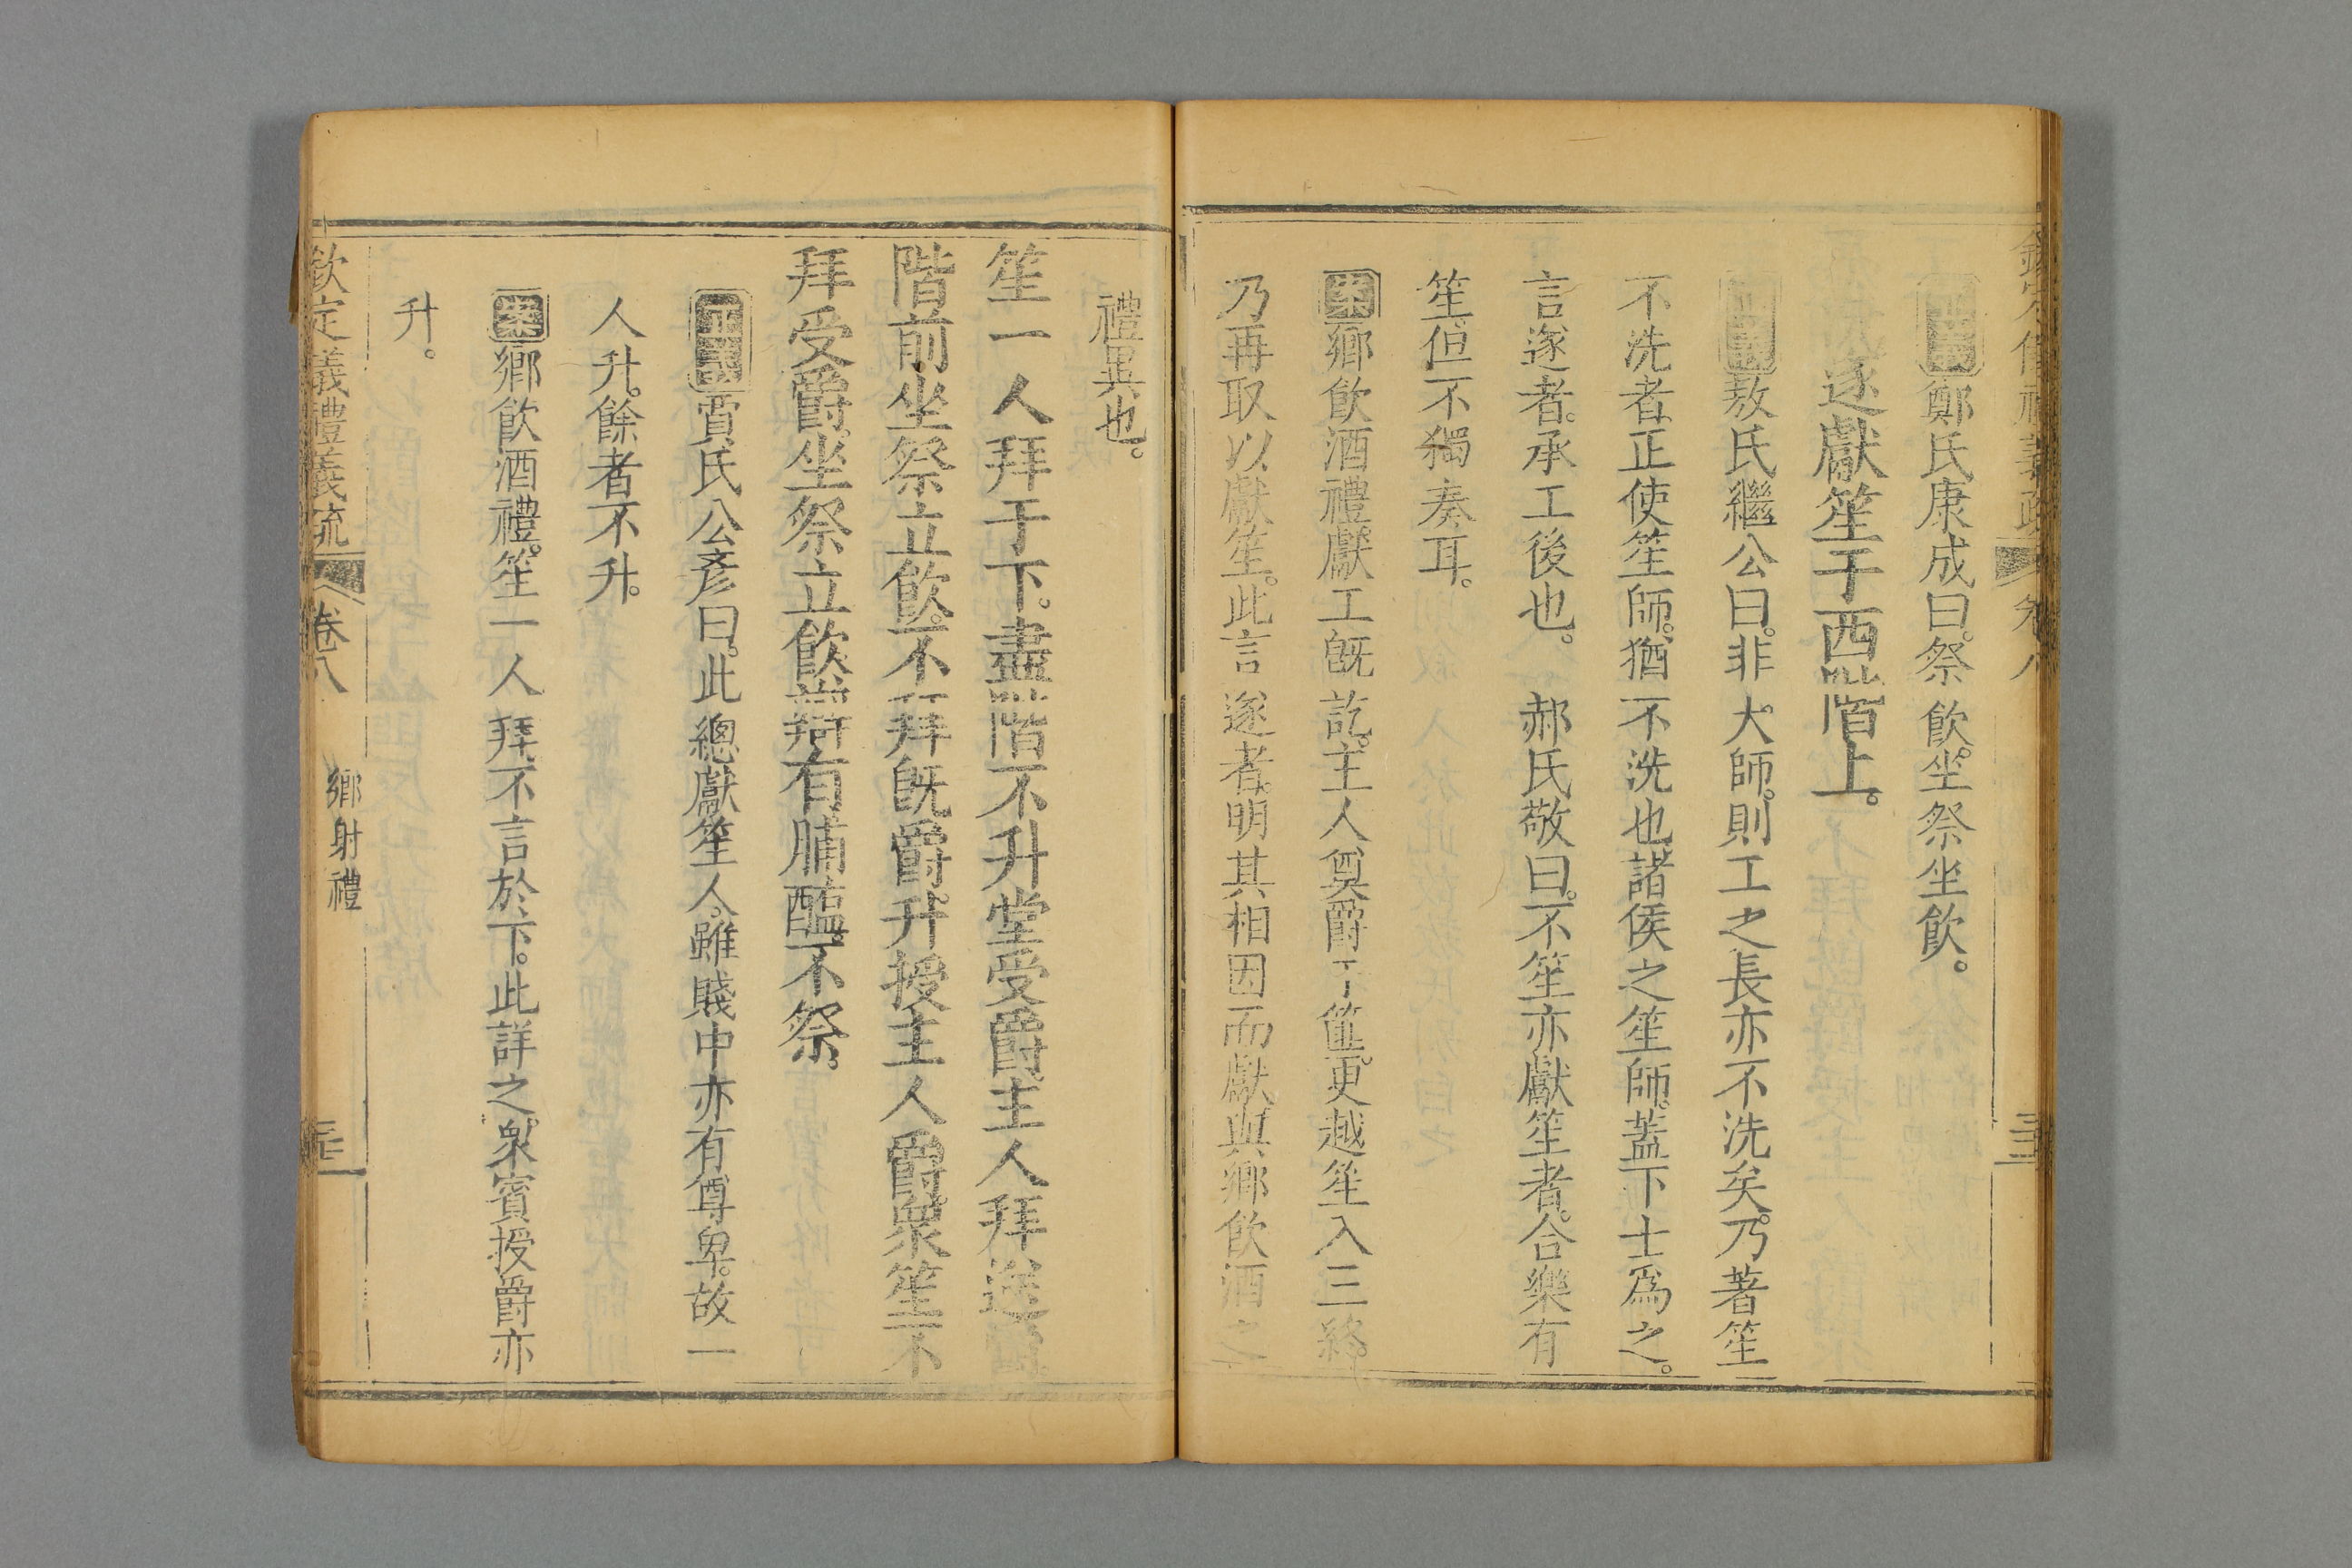 鄭氏康成曰。祭飲。坐祭坐飲。
遂獻笙于西階上。
敖氏繼公曰。非大師。則工之長亦不洗矣。乃著笙
不洗者。正使笙師。猶不洗也。諸侯之笙師。蓋下士爲之。
言遂者。承工後也。 郝氏敬曰。不笙亦獻笙者。合樂有
笙。但不獨奏耳。
案鄉飲酒禮獻工旣訖。主人奠爵于篚。更越笙入三終。
乃再取以獻笙。此言遂者。明其相因而獻。與鄉飲酒之
禮異也。
笙一人拜于下。盡階不升堂受爵。主人拜送
階前坐祭立飲。不拜旣爵。升授主人爵。衆笙不
拜受爵。坐祭立飲。辯有脯醢。不祭。
正義賈氏公彥曰。此總獻笙人。雖賤中亦有尊卑。故一
人升。餘者不升。
案鄉飲酒禮。笙一人拜。不言於下。此詳之。衆賓授爵亦
升。
欽定儀禮義疏 卷八 鄉射禮